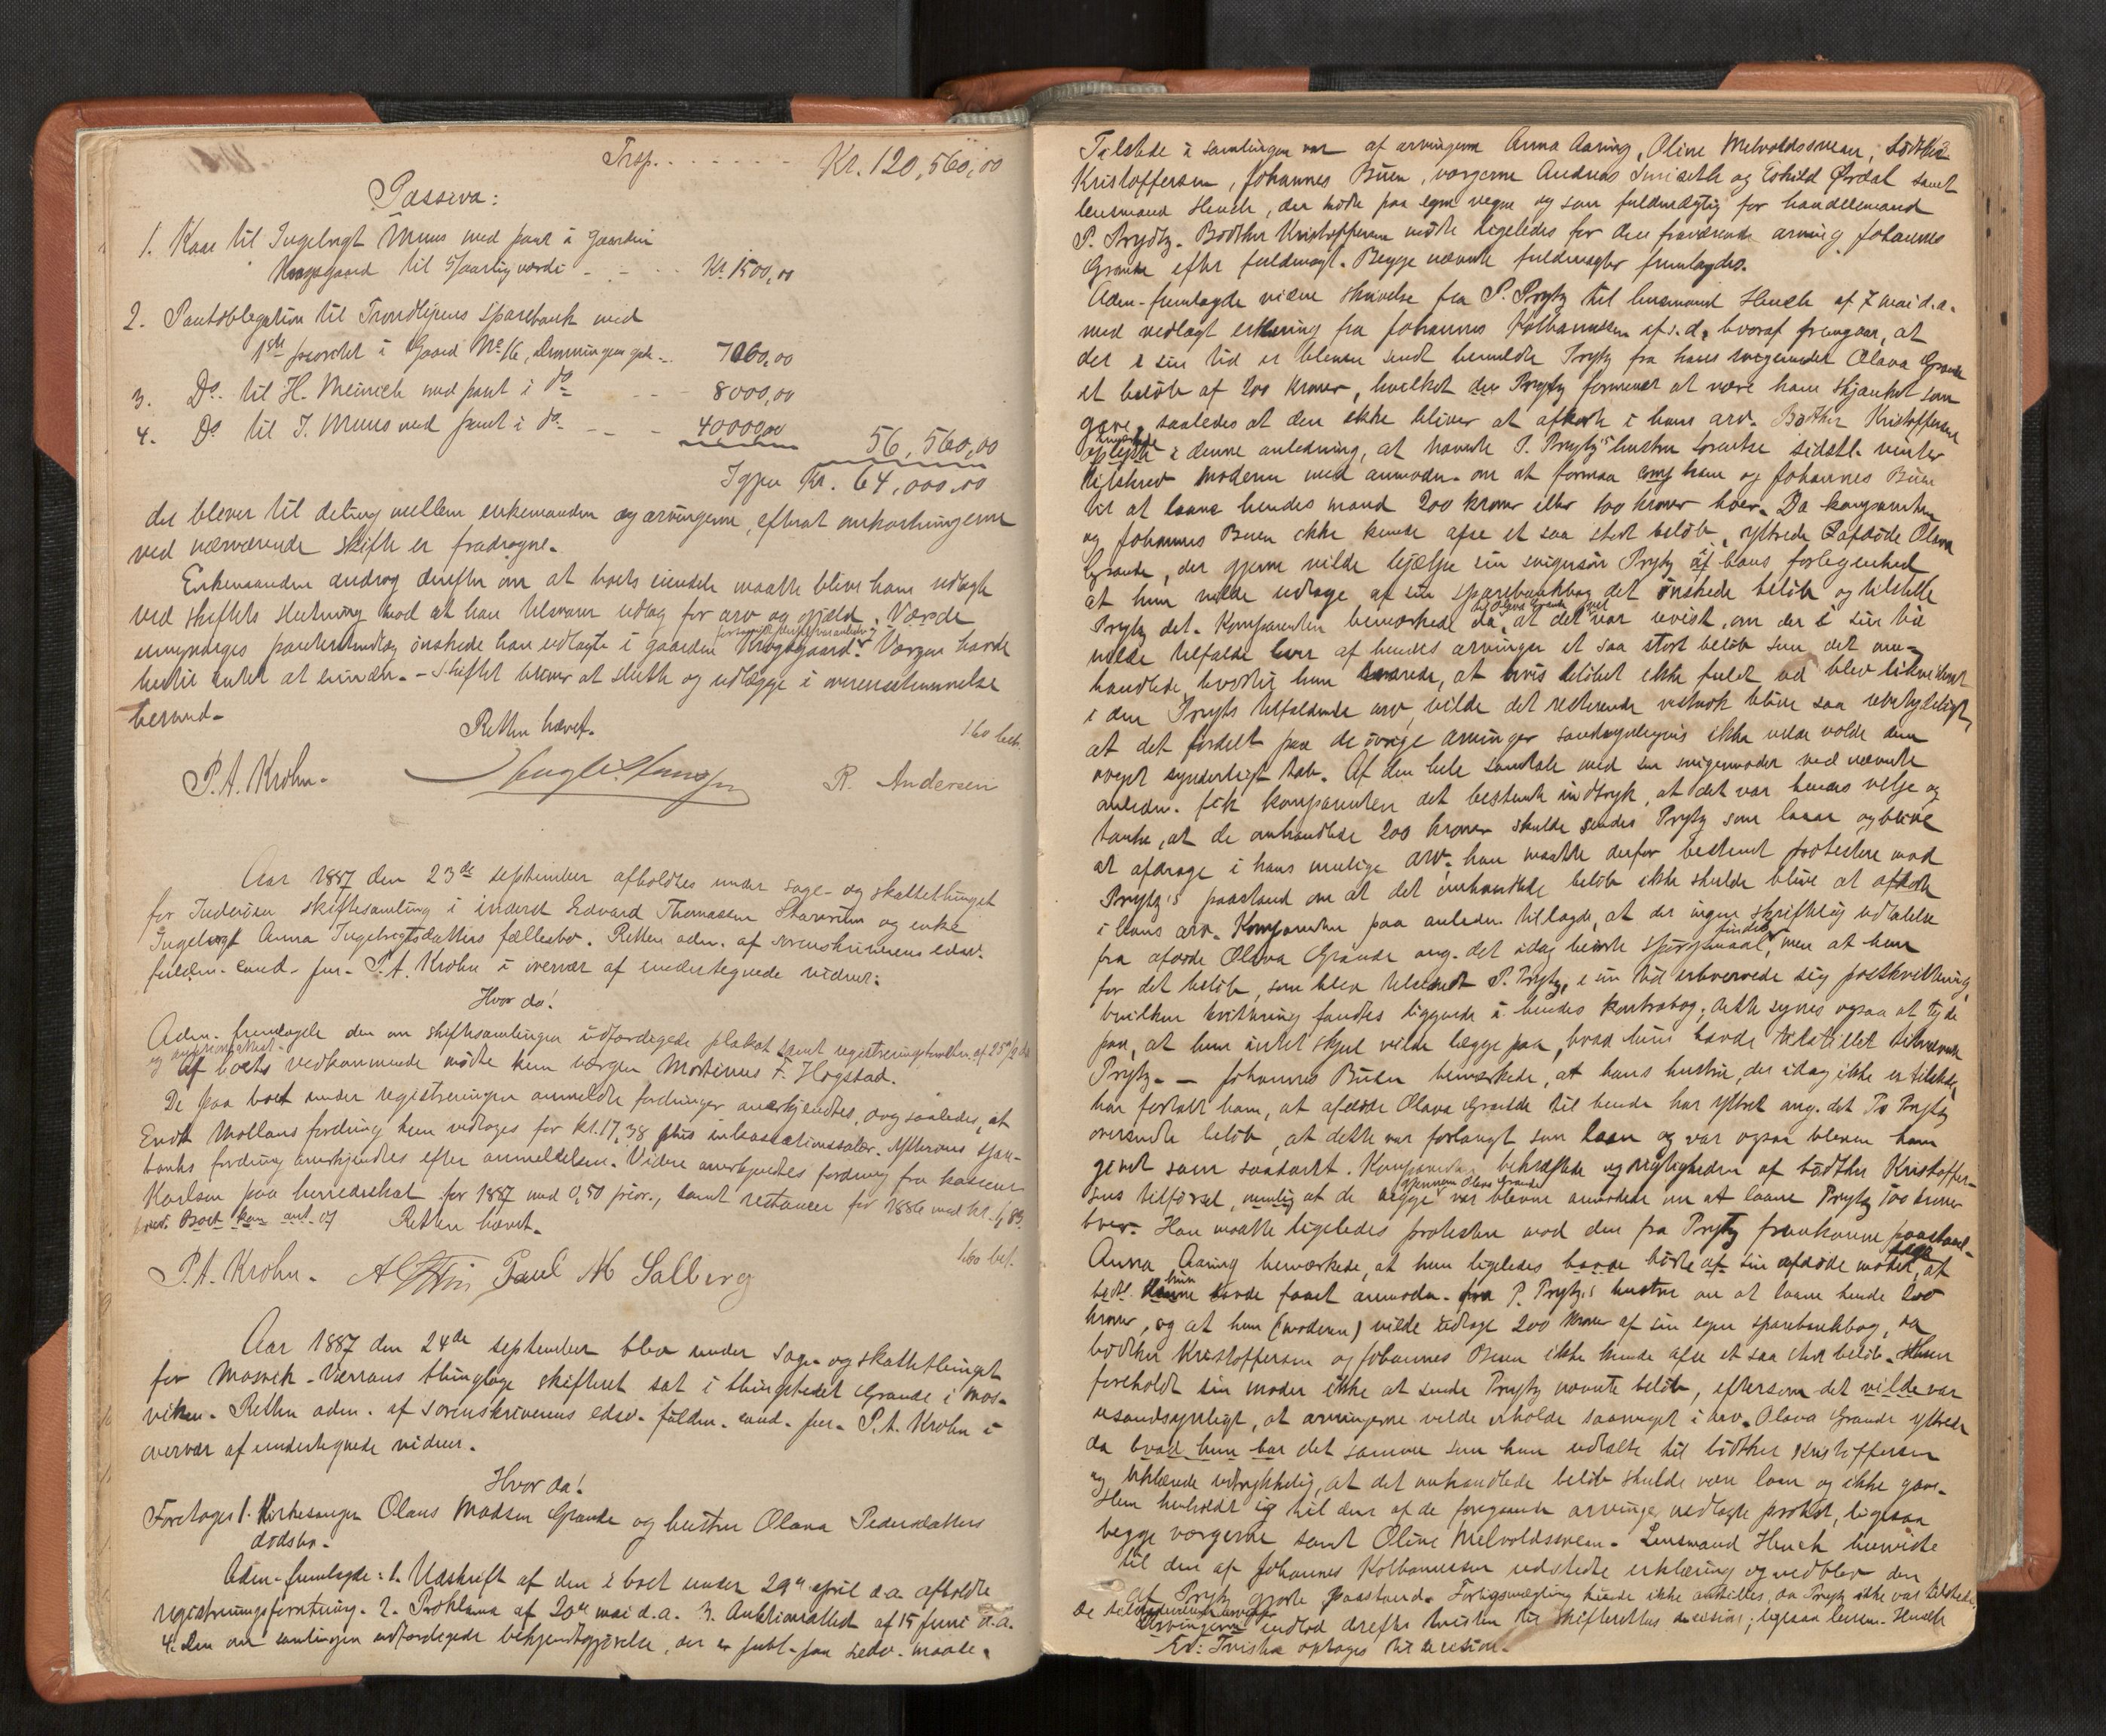 Trsp. . . . . . . . Kr. 120,560,00
Passiva:
1. Kaae til Ingebrigt Muus med pant i gaarden
Krogsgaard til 5/aarlig værdi - - . . Kr. 1500,00
2. Pantobligation til Trondhjems Sparebank med
1ste prioritet i Gaard No 16, Dronningens gade - 7060,00
3. Do. til H. Meinich med pant i do - - - 8000,00
4. Do til J. Muus med pant i do - - - 40000,00 56,560,00
Igjen Kr. 64,000,00
der bliver til deling mellem enkemanden og arvingerne, efterat omkostningerne
ved nærværende skifte er fradragne.
Enkemanden androg derefter om at boets eiendele maatte blive ham udlagte
ved skiftets slutning mod at han tilsvarer udlæg for arv og gjæld. Værende
umyndiges panteudlæg ønskede han udlagte i gaarden Krogsgaard. Værgen havde
hertil intet at erindre. - Skiftet bliver at slutte og udlægge i overensstemmelse
hermed.
Retten hævet. 1 60 bet.
P.A. Krohn. R. Andersen
Aar 1887 den 23de september afholdtes under sage- og skattethinget
for Inderøen skiftesamling i inderst Edvard Thomassen Staavrum og enke
Ingeborg Anna Ingebrigtsdatters fællesbo. Retten adm. af sorenskriverens edsv.
fuldm. cand. jur. P.A. Krohn i overvær af undertegnede vidner:
Hvor da!
Adm. fremlagde den om skiftesamlingen udfærdigede plakat samt registreringsforretn. af 25/2 d.a.
og auktionsattest.
Af boets vedkommende mødte kun værgen Mortinus F. Hogstad.
De paa boet under registreringen anmeldte fordringer anerkjendtes, dog saaledes, at
Endt Mollans fordring kun vedtoges for kr. 17,38 plus inkassationssalær. Ytterøens spare-
banks fordring anerkjendtes efter anmeldelsen. Videre anerkjendtes fordring fra kasserer
Karlsen paa herredsskat for 1887 med 0,50 prior., samt restancer for 1886 med kr. 1,83.
Boet kan ant. of Retten hævet.
1 60 bet.
P.A. Krohn. Paul M Salberg
Aar 1887 den 24de september blev under sage- og skattethinget
for Mosvik-Værrans thinglag skifteret sat i thingstedet Grande i Mos-
viken. Retten adm. af sorenskriverens edsv. fuldm. cand. jur. P.A. Krohn i
overvær af undertegnede vidner.
Hvor da!
Foretoges 1. Kirkesanger Olaus Madsen Grande og hustru Olava Pedersdatters
dødsbo.
Adm. fremlagde: 1. Udskrift af den i boet under 29de april d.a. afholdte
registreringsforretning. 2. Proklama af 20de mai d.a. 3. Auktionsattest af 15 juni d.a.
4. den om samlingen udfærdigede bekjendtgjørelse, der er publ. paa sedv. maade.
Tilstede i samlingen var af arvingerne Anna Aaring, Oline Melvoldssveen, Bødtker
Kristoffersen, Johannes Buen, værgerne Andreas og Eskild Ørdal samt
lensmand Hench, der mødte paa egne vegne og som fuldmægtig for handelsmand
P. Prydtz. Bødtker Kristoffersen mødte ligeledes for den fraværende arving Johannes
Grande efter fuldmagt. Begge nævnte fuldmagter fremlagdes.
Adm. fremlagde videre skrivelse fra P. Prytz til lensmand Hench af 7 mai d.a.
med vedlagt erklæring fra Johannes Kolbannussen af s.d., hvoraf fremgaar, at
der i sin tid er bleven sendt bemeldte Prytz fra hans svigermoder Olava Grande
et beløb af 200 kroner, hvilket der Prytz formener at være ham skjænket som
gave, saaledes at den ikke bliver at afkorte i hans arv. Bødtker Kristoffersen
oplyste i denne anledning, at nævnte P. Prytz's hustru Lorentse sidstl. vinter
tilskrev moderen med anmodn. om at formaa komp. ham og Johannes Buen
til at laane hendes mand 200 kroner eller 100 kroner hver. Da komparenten
og Johannes Buen ikke kunde afse et saa stort beløb, yttrede afdøde Olava
Grande, der gjerne vilde hjælpe sin svigersøn Prytz af hans forlegenhed
at hun vilde udtage af sin sparebankbog det ønskede beløb og tilstille
Prytz det. Komparenten bemærkede da til Olava Grande, at det var uvist, om der i sin tid
vilde tilfalde hver af hendes arvinger et saa stort beløb som det om-
handlede, hvortil hun svarede, at hvis beløbet ikke fuldt ud blev likvideret
i den Prytz tilfaldende arv, vilde det resterende vistnok blive saa ubetydeligt,
at det fordelt paa de øvrige arvinger sandsynligvis ikke vilde volde dem
noget synderligt tab. Af den hele samtale med sin svigermoder ved nævnte
anledn. fik komparenten det bestemte indtryk, at det var hendes vilje og
tanke, at de omhandlede 200 kroner skulde sendes Prytz som laan og blive
at afdrage i hans mulige arv; han maatte derfor bestemt protestere mod
Prytz's paastand om at det omhandlede beløb ikke skulde blive at afkorte
i hans arv. Komparenten paa anledn. tillagde, at der ingen skriftlig udtalelse
fra afdøde Olava Grande ang. det idag berørte spørgsmaal findes, men at hun
for det beløb, som blev tilsendt P. Prytz, i sin tid erhvervede sig postkvittering,
hvilken kvittering fandtes liggende i hendes kontrabog; dette synes ogsaa at tyde
paa, at hun intet skjul vilde lægge paa, hvad hun havde tilstillet
Prytz. — Johannes Buen bemærkede, at hans hustru, der idag ikke er tilstede,
har fortalt ham, at afdøde Olava Grande til hende har yttret ang. det P. Prytz
oversendte beløb, at dette var forlangt som laan og var ogsaa bleven ham
givet som saadant. Komparenten bekræftede rigtigheden af bødtker Kristoffer-
sens tilførsel, nemlig at de begge gjennem Olava Grande var blevne anmodede om at laane Prytz 100 kroner
hver. Han maatte ligeledes protestere mod den fra Prytz fremkomne paastand.
Anna Aaring bemærkede, at hun ligeledes havde hørt af sin afdøde moder, at
hun havde faaet anmodn. fra P. Prytz's hustru om at laane hende 200
kroner, og at hun (moderen) vilde udtage 200 kroner af sin egen sparebankbog, da
bødtker Kristoffersen og Johannes Buen ikke kunde afse et saa stort beløb. Hun
foreholdt sin moder ikke at sende Prytz nævnte beløb, eftersom det vilde var
usandsynligt, at arvingerne vilde erholde saameget i arv. Olava Grande yttrede
da hvad hun bar det samme som hun udtalte til bødtker Kristoffersen
og erklærede udtrykkelig, at det omhandlede beløb skulde være laan og ikke gave.
Hun henholdt sig til den af de foregaaende arvinger nedlagte protest, ligesaa
begge værgerne samt Oline Melvoldssveen. Lensmand Hench henviste
til den af Johannes Kolbannussen udstedte erklæring og vedblev den
af Prytz gjorte paastand. Forligsmægling kunde ikke anstilles, da Prytz ikke var tilstede.
De arvingerne indlod derefter tvisten til skifterettens decision; ligesaa lensm. Hench
Ed: Tvisten optages til decision.